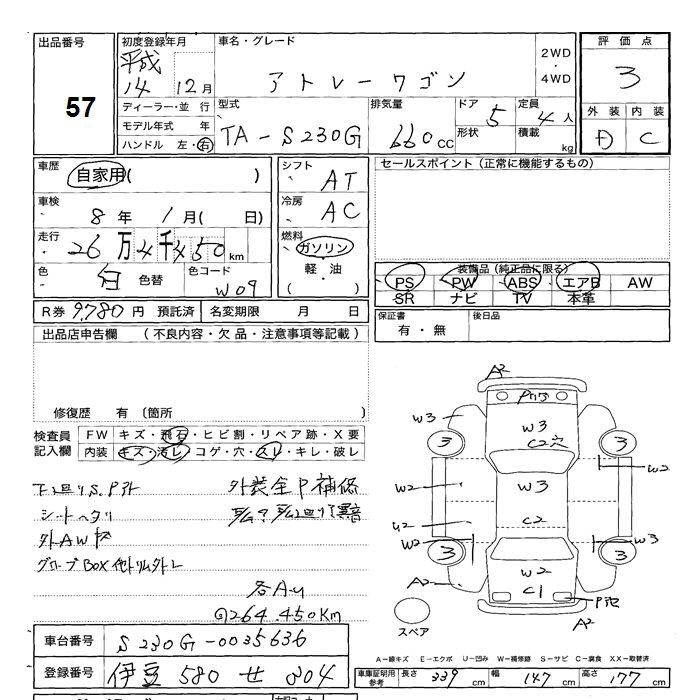 出品番号
57
初度登録年月
平成
14 12月
車名・グレード
アトレーワゴン
2WD
・
4WD
評価点
3
外装 内装
D C
ディーラー・並行
モデル年式 年
ハンドル 左・右
型式
TA-S230G
排気量
660cc
ドア 5
形状
定員 4人
積載 kg
車歴
自家用( )
車検
8年 1月( 日)
走行
26万4千450km
色
白 色替
色コード
W09
シフト
AT
冷房
AC
燃料
ガソリン
軽・油
( )
セールスポイント(正常に機能するもの)
装備品(純正品に限る)
PS PW ABS エアB AW
SR ナビ TV 本革
R券 9,780円 預託済 名変期限 月 日
保証書
有・無
後日品
出品店申告欄 (不良内容・欠品・注意事項等記載)
修復歴 有 (箇所 )
検査員
記入欄
FW キズ・飛石・ヒビ割・リペア跡・X要
内装 キズ・汚レ・コゲ・穴・スレ・キレ・破レ
下廻りS、P外
外装全P補修
シートヘタリ
外AWキズ
グローブBOX
各AU
264,450Km
車台番号 S230G-0035636
登録番号 伊豆 580 せ 304
A2
W3
W3
C2穴
3
3
W2
W2
W3
U2
C2
W2
W3
3
3
A2
W2
C1
A2
スペア
A-線キズ E-エクボ U-凹み W-補修跡 S-サビ C-腐食 XX-取替済
車車証明用
参考
長さ 339cm 幅 147cm 高さ 177cm